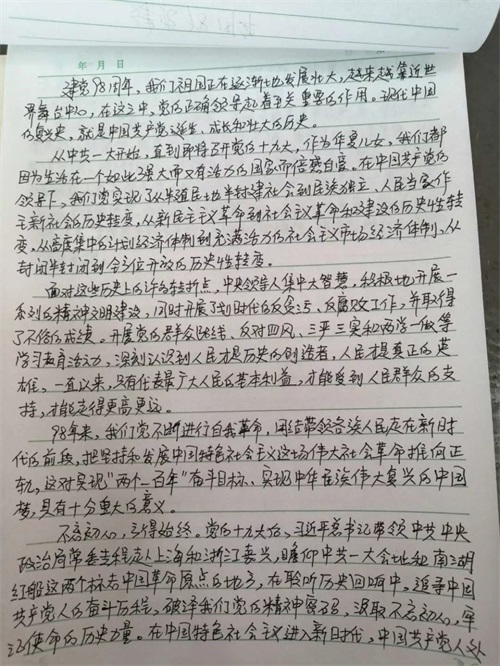 年 月 日
建党98周年，我们祖国正在逐渐地发展壮大，越来越靠近世
界舞台中心，在这之中，党的正确领导起着至关重要的作用。现代中国
的复兴史，就是中国共产党诞生、成长和壮大的历史。
从中共一大开始，直到即将召开党的十九大，作为华夏儿女，我们都
因为生活在一个如此强大而又有活力的国家而倍感自豪。在中国共产党的
领导下，我们党实现了从半殖民地半封建社会到民族独立、人民当家作
主新社会的历史转变，从新民主主义革命到社会主义革命和建设的历史性转
变，从高度集中的计划经济体制到充满活力的社会主义市场经济体制、从
封闭半封闭到全方位开放的历史性转变。
面对这些历史上的许的转折点，中央领导人集中大智慧，积极地开展一
系列的精神文明建设，同时开展了划时代的反贪污、反腐败工作，并取得
了不俗的成绩。开展党的群众路线、反对四风、三严三实和两学一做等
学习教育活动，深刻认识到人民才是历史的创造者，人民才是真正的英
雄。一直以来，只有代表最广大人民的基本利益，才能受到人民群众的支
持，才能走得更高更远。
98年来，我们党不断进行自我革命，团结带领各族人民走在新时
代的前段，把坚持和发展中国特色社会主义这场伟大社会革命推向正
轨，这对实现"两个一百年"奋斗目标、实现中华民族伟大复兴的中国
梦，具有十分重大的意义。
不忘初心，方得始终。党的十九大后，习近平总书记带领中共中央
政治局常委专程赴上海和浙江嘉兴，瞻仰中共一大会址和南湖
红船这两个标志中国革命原点的地方，在聆听历史回响中，追寻中国
共产党人的奋斗历程，破译我们党的精神密码，汲取不忘初心，牢
记使命的历史力量。在中国特色社会主义进入新时代，中国共产党人处